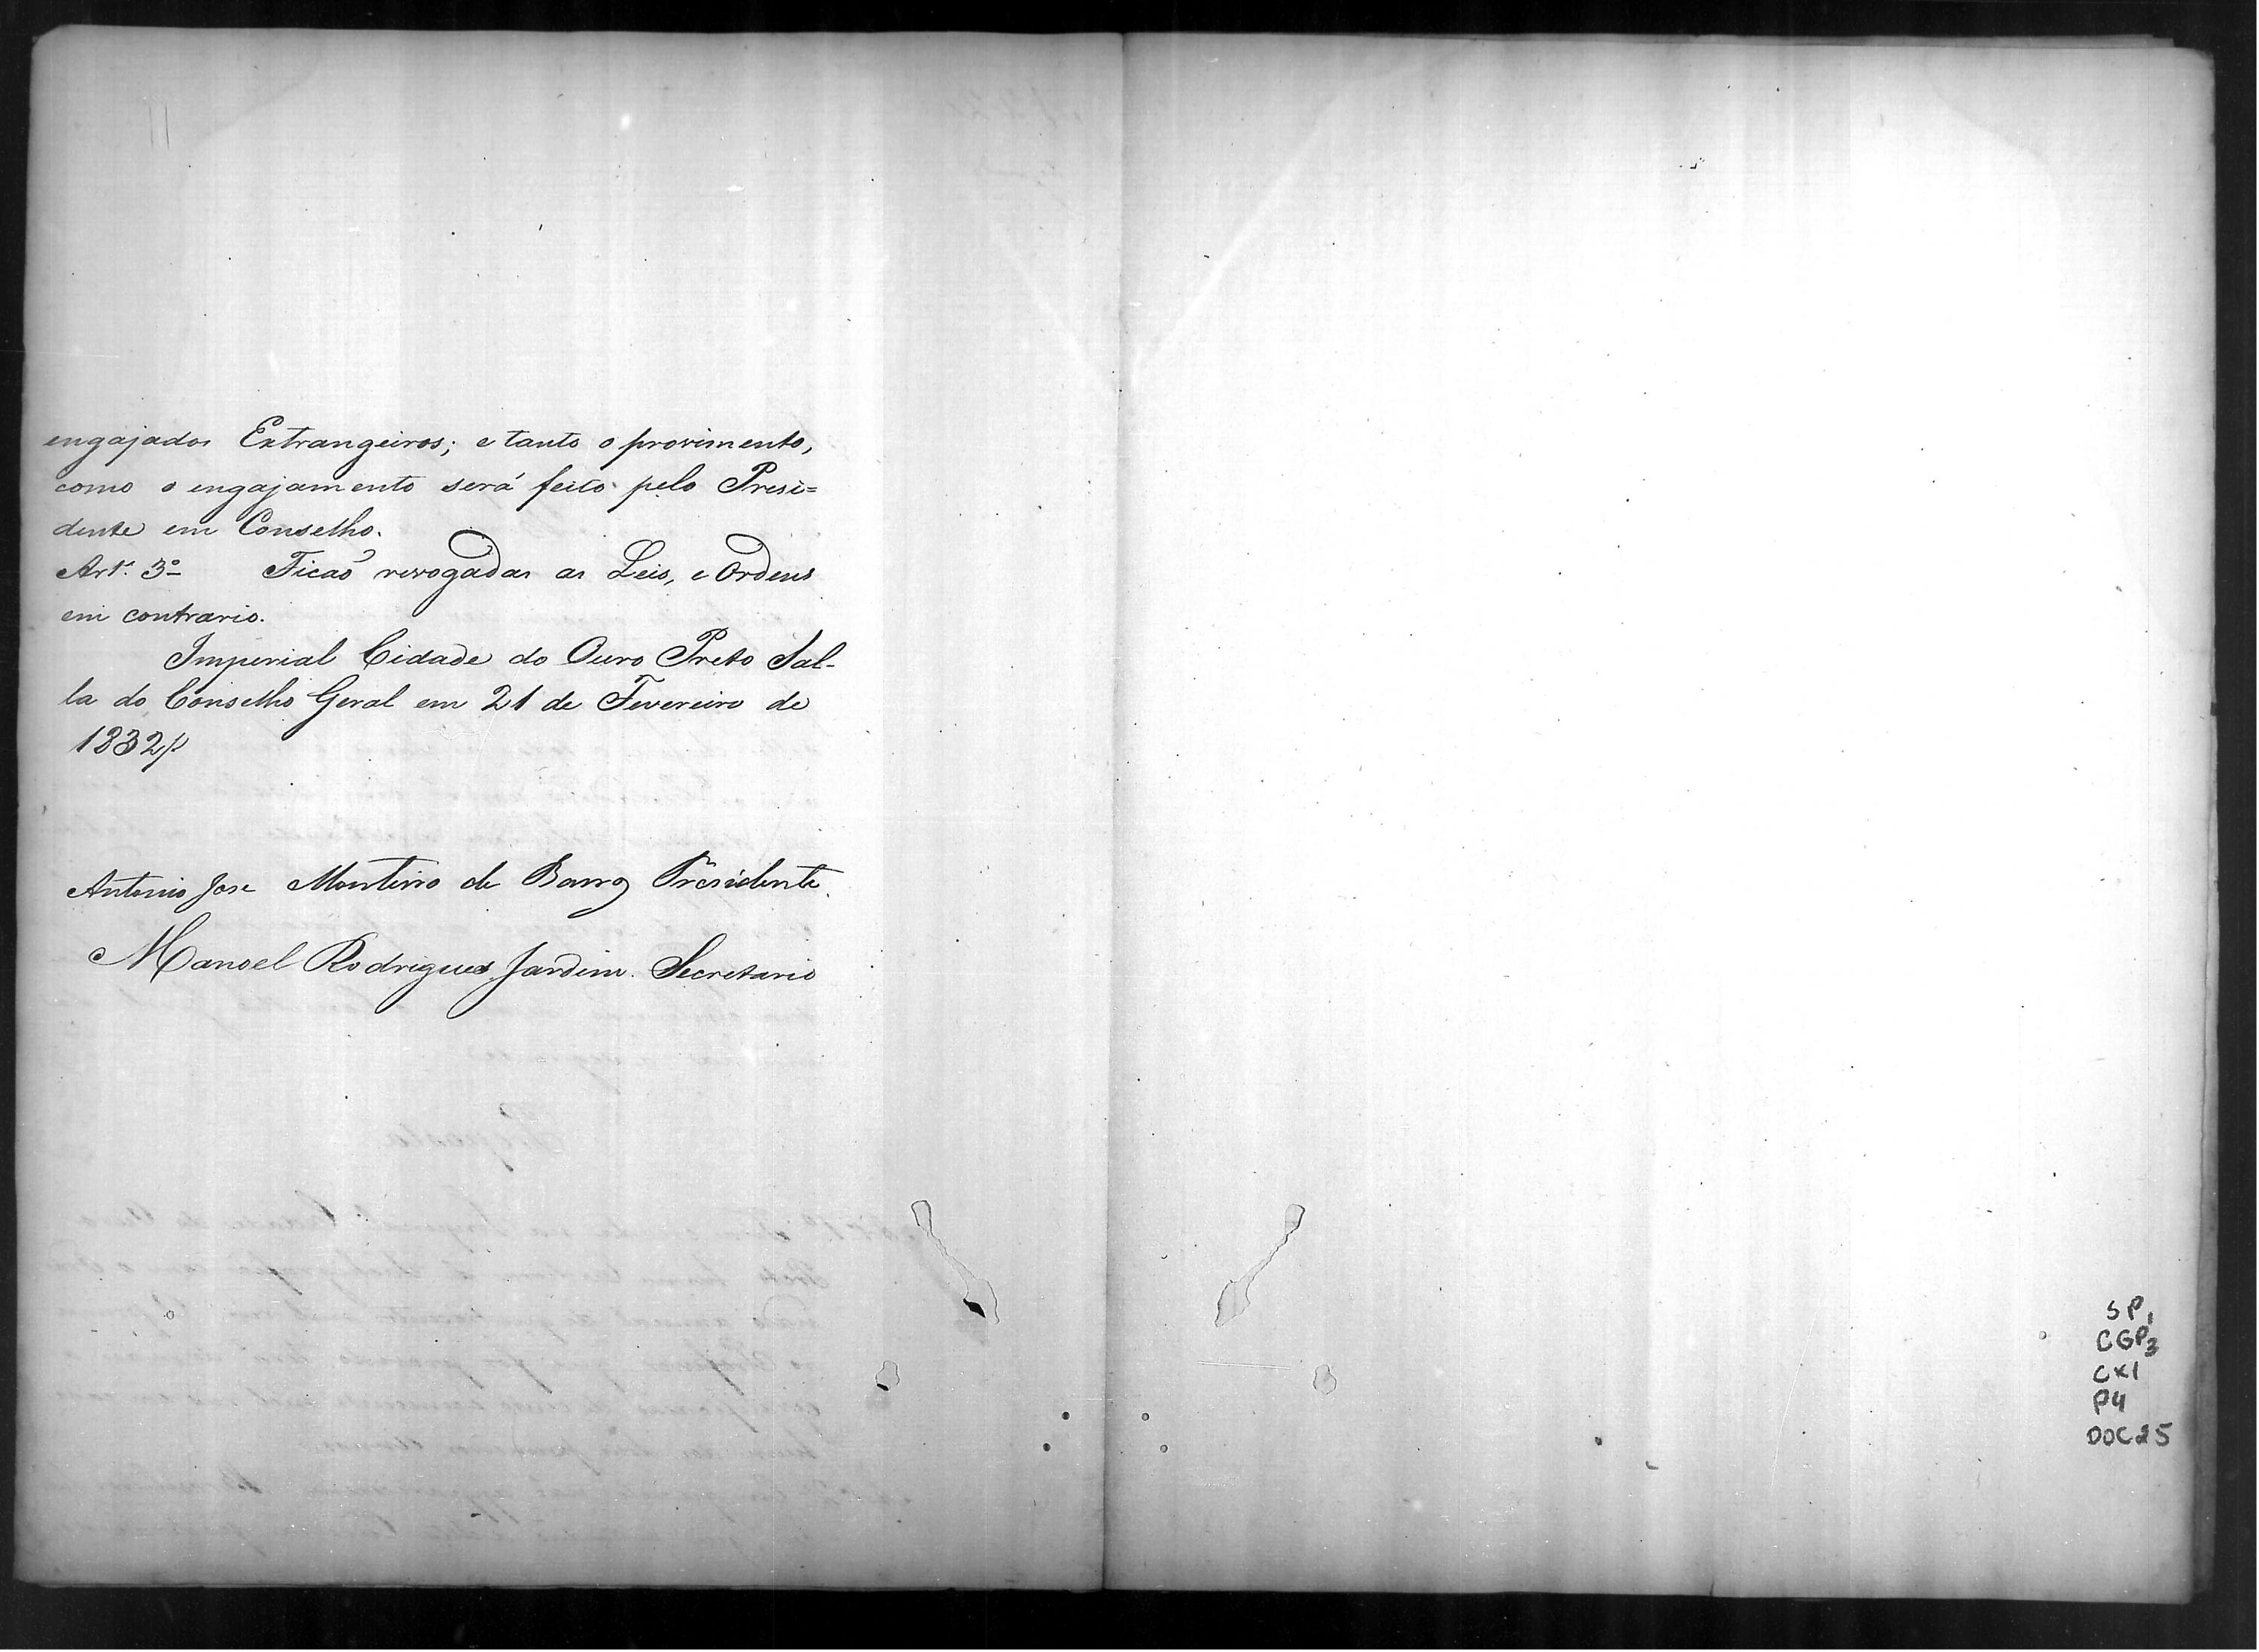 engajados Extrangeiros; e tanto o provimento,
como o engajamento será feito pelo Presi=
dente em Conselho.
Art. 3º Ficaõ revogadas as Leis, e Ordens
em contrario.
Imperial Cidade do Ouro Preto Sal-
la do Conselho Geral em 21 de Fevereiro de
1832
Antonio Jose Monteiro de Barros Presidente.
Manoel Rodrigues Jardim. Secretario
SP1
CGP3
CX1
P4
DOC25